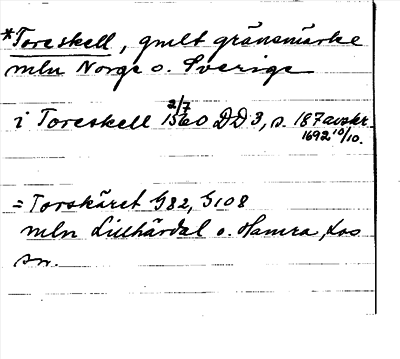 *Toreskell, gmlt gränsmärke
mln Norge o. Sverige
i Toreskell 2/7 1560 DD3, s. 187 avskr.
1692 10/10.
= Torskäret G82, G108
mln Lillhärdal o. Hamra, Los
sn.